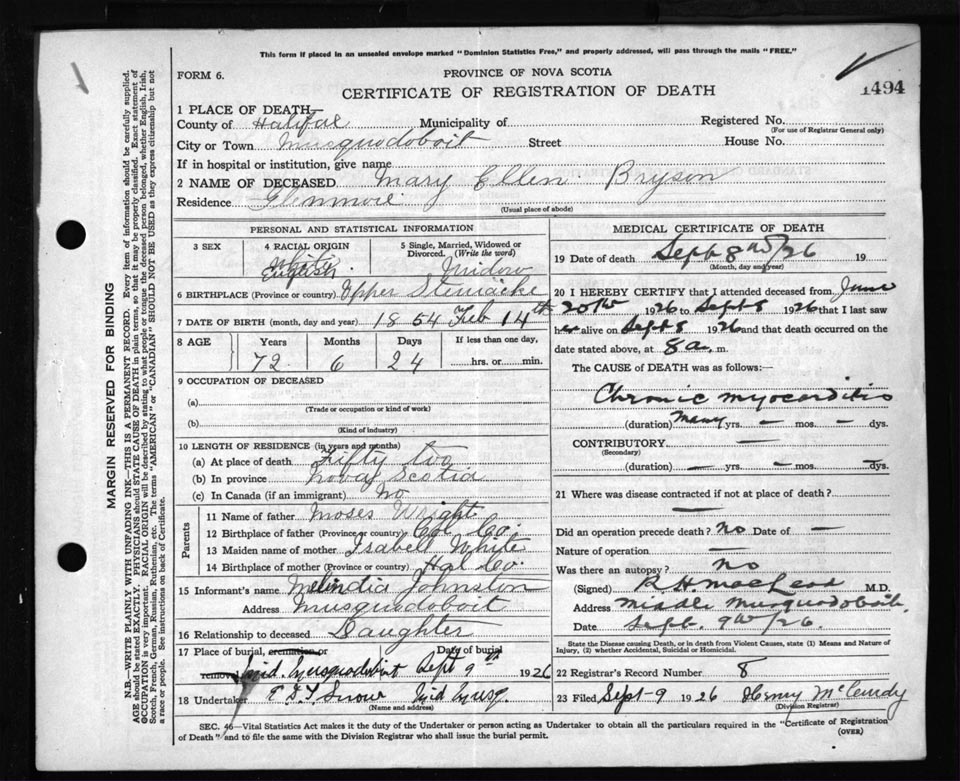 This form if placed in an unsealed envelope marked "Dominion Statistics Free," and properly addressed, will pass through the mails "FREE."
FORM 6.
PROVINCE OF NOVA SCOTIA
CERTIFICATE OF REGISTRATION OF DEATH
1494
1 PLACE OF DEATH—
County of Halifax Municipality of Registered No.
(For use of Registrar General only)
City or Town Musquodoboit Street House No.
If in hospital or institution, give name
2 NAME OF DECEASED Mary Ellen Bryson
Residence Glenmore
(Usual place of abode)
PERSONAL AND STATISTICAL INFORMATION
3 SEX 4 RACIAL ORIGIN 5 Single, Married, Widowed or Divorced. (Write the word)
White
English. Widow
6 BIRTHPLACE (Province or country) Upper Stewiacke
7 DATE OF BIRTH (month, day and year) 1854 Feb 14th
8 AGE Years Months Days If less than one day,
72 6 24 hrs. or min.
9 OCCUPATION OF DECEASED
(a)
(Trade or occupation or kind of work)
(b)
(Kind of industry)
10 LENGTH OF RESIDENCE (in years and months)
(a) At place of death Fifty two
(b) In province Novay Scotia
(c) In Canada (if an immigrant) No
Parents
11 Name of father Moses Wright
12 Birthplace of father (Province or country) Col Co.
13 Maiden name of mother Isabell White
14 Birthplace of mother (Province or country) Hal Co.
15 Informant's name Johnston
Address Musquodoboit
16 Relationship to deceased Daughter
17 Place of burial, cremation or removal Date of burial
Mid. Musquodoboit Sept 9th 1926
18 Undertaker Snow Mid Musq.
(Name and address)
MEDICAL CERTIFICATE OF DEATH
19 Date of death Sept 8th/26 19
(Month, day and year)
20 I HEREBY CERTIFY that I attended deceased from June
20th 1926 to Sept 8 1926 that I last saw
her alive on Sept 8 1926 and that death occurred on
date stated above, at 8 a. m.
The CAUSE of DEATH was as follows:—
Chronic Myocarditis
(duration) many yrs. — mos. — dys.
CONTRIBUTORY —
(Secondary)
(duration) — yrs. — mos. — dys.
21 Where was disease contracted if not at place of death?
—
Did an operation precede death? No Date of —
Nature of operation —
Was there an autopsy? No
(Signed) R. H. MacLeod M.D.
Address Middle Musquodoboit
Date Sept. 9th/26.
19 State the Disease causing Death, or in death from Violent Causes, state (1) Means and Nature of Injury, (2) whether Accidental, Suicidal or Homicidal.
22 Registrar's Record Number 8
23 Filed Sept-9 1926 Henry McCurdy
(Division Registrar)
SEC. 46—Vital Statistics Act makes it the duty of the Undertaker or person acting as Undertaker to obtain all the particulars required in the "Certificate of Registration
of Death" and to file the same with the Division Registrar who shall issue the burial permit.
(OVER)
MARGIN RESERVED FOR BINDING
N.B.—WRITE PLAINLY WITH UNFADING INK—THIS IS A PERMANENT RECORD. Every item of information should be carefully supplied.
AGE should be stated EXACTLY. PHYSICIANS should STATE CAUSE OF DEATH in plain terms, so that it may be properly classified. Exact statement of
OCCUPATION is very important. RACIAL ORIGIN will be described by stating to what people or tongue the deceased person belonged, whether English, Irish,
Scotch, French, German, Russian, Ruthenian, etc. The terms "AMERICAN" or "CANADIAN" SHOULD NOT BE USED as they express citizenship but not
a race or people. See instructions on back of Certificate.